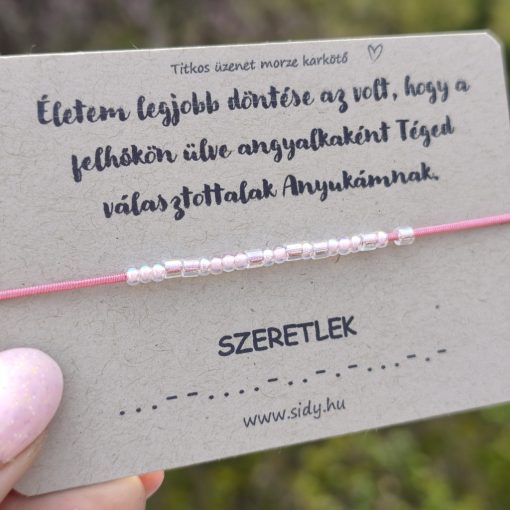 Titkos üzenet morze karkötő
Életem legjobb döntése az volt, hogy a
felhőkön ülve angyalkaként Téged
választottalak Anyukámnak.
SZERETLEK
...--...-.-.-..-.-...-.-
www.sidy.hu